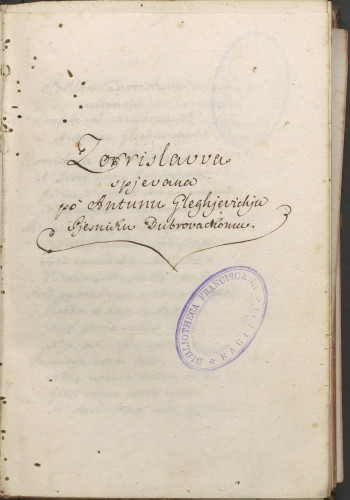 Zorrislavva
spjevana
pò Antunu Gleghjevichja
Pjesniku Dubrovackomu.
BIBLIOTHECA FRANCISCA